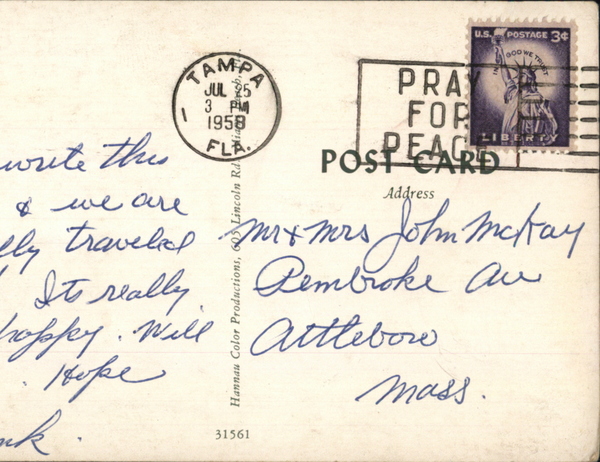 TAMPA
JUL 25
3 PM
1958
FLA.
1
PRAY
FOR
PEACE
U.S. POSTAGE 3¢
IN GOD WE TRUST
LIBERTY
POST CARD
Address
write this
& we are
traveled
Its really
happy. Will
. Hope
Hannau Color Productions, 605 Lincoln Rd.
Mr & Mrs John McKay
Pembroke Ave
Attleboro
Mass.
31561